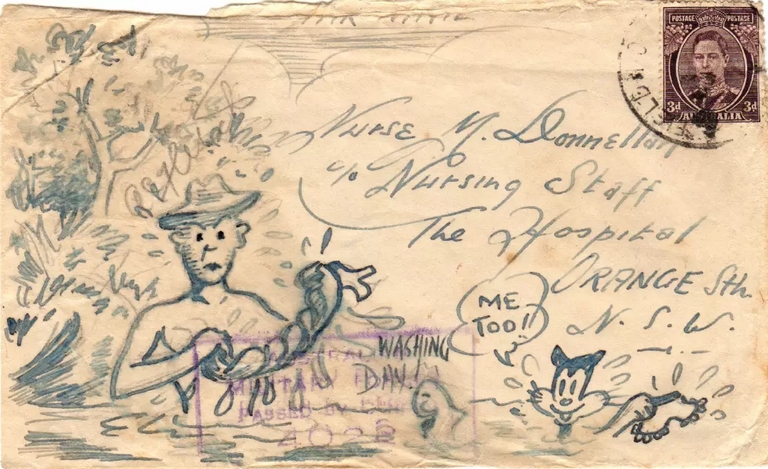 AIR MAIL
POSTAGE POSTAGE
3d 3d
AUSTRALIA
Nurse M. Donnellan
c/o Nursing Staff
The Hospital
ORANGE Sth.
N. S. W.
ME
TOO!!
WASHING
DAY
MILITARY
PASSED BY
402